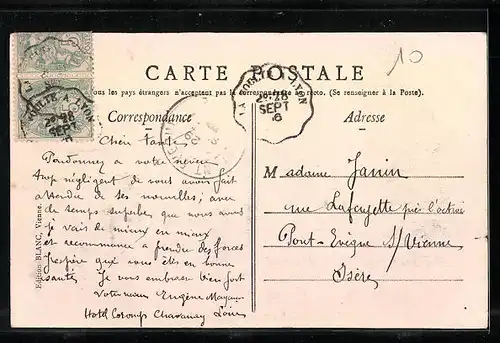 10
CARTE POSTALE
Tous les pays étrangers n'acceptent pas la correspondance au recto. (Se renseigner à la Poste).
Correspondance
Adresse
LYON
2º 28
SEPT
6
Chère tante
Pardonnez a votre neveu
trop négligent de vous avoir fait
attendre de ses nouvelles, avec
le temps superbe que nous avons
je vais de mieux en mieux
et recommence a prendre des forces
J'espère que vous êtes en bonne
santé. Je vous embrasse bien fort
Votre neveu Eugène
Hotel Chavanay Loire
Madame Janin
rue Lafayette près l'octroi
Pont-Evêque S/ Vienne
Isère
Edition BLANC, Vienne.